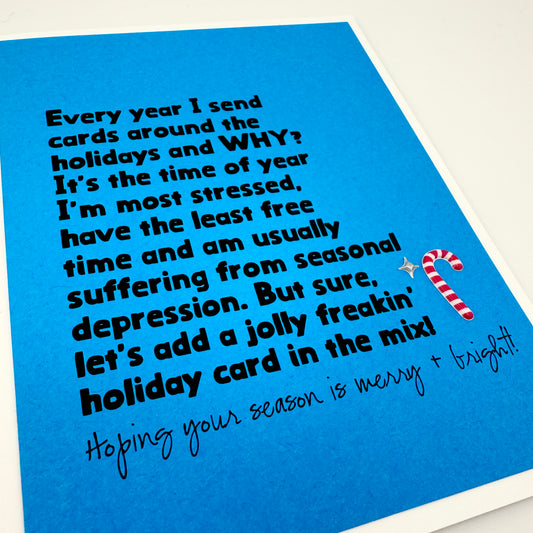 Every year I send
cards around the
holidays and WHY?
It's the time of year
I'm most stressed,
have the least free
time and am usually
suffering from seasonal
depression. But sure,
let's add a jolly freakin'
holiday card in the mix!
Hoping your season is merry + bright!